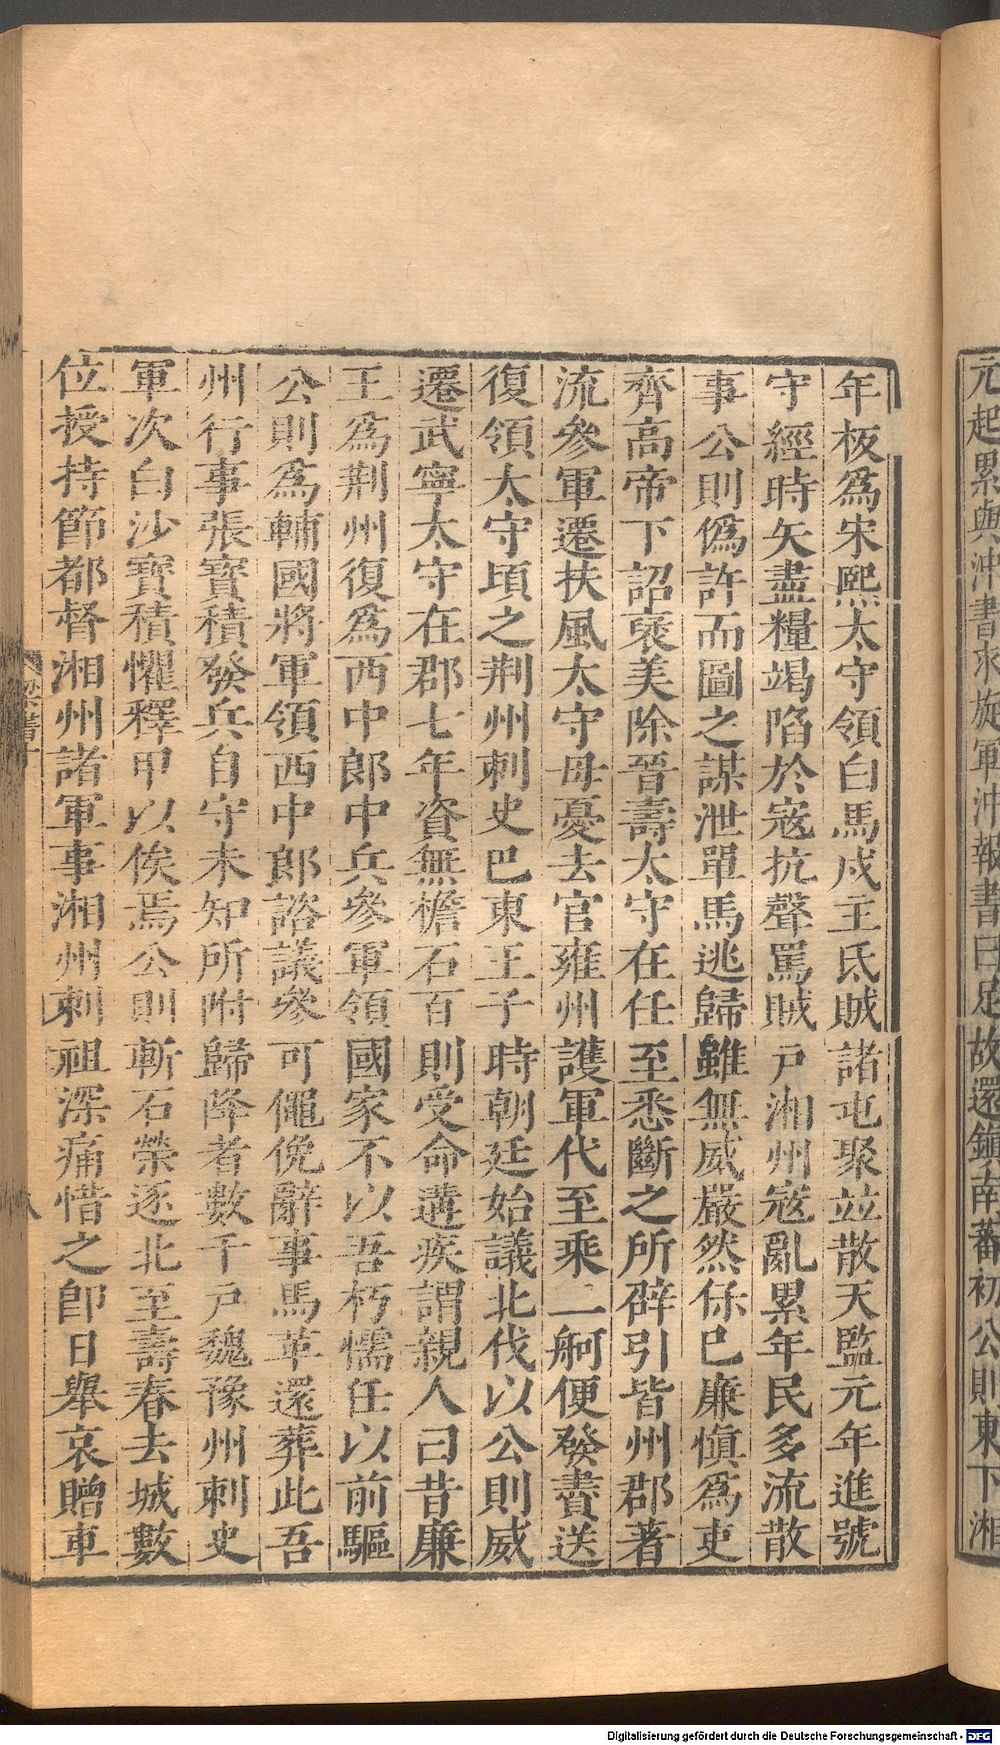 元起累與沖書求旋軍沖報書曰足故還鎮南蕃初公則東下湘
年板爲宋熙太守領白馬戍主氐賊諸屯聚竝散天監元年進號
守經時矢盡糧竭陷於寇抗聲罵賊戶湘州寇亂累年民多流散
事公則僞許而圖之謀泄單馬逃歸雖無威嚴然保巳廉愼爲吏
齊高帝下詔褒美除晉壽太守在任至悉斷之所辟引皆州郡著
流參軍遷扶風太守母憂去官雍州護軍代至乘二舸便發賷送
復領太守頃之荆州刺史巴東王子時朝廷始議北伐以公則威
遷武寧太守在郡七年資無檐石百則受命遘疾謂親人曰昔廉
王爲荆州復爲西中郎中兵參軍領國家不以吾朽懦任以前驅
公則爲輔國將軍領西中郎諮議參可僶俛辭事馬革還葬此吾
州行事張寳積發兵自守未知所附歸降者數千戶魏豫州刺史
軍次白沙寳積懼釋甲以俟焉公則斬石榮逐北至壽春去城數
位授持節都督湘州諸軍事湘州刺祖深痛惜之卽日舉哀贈車
梁書十
八
Digitalisierung gefördert durch die Deutsche Forschungsgemeinschaft - DFG